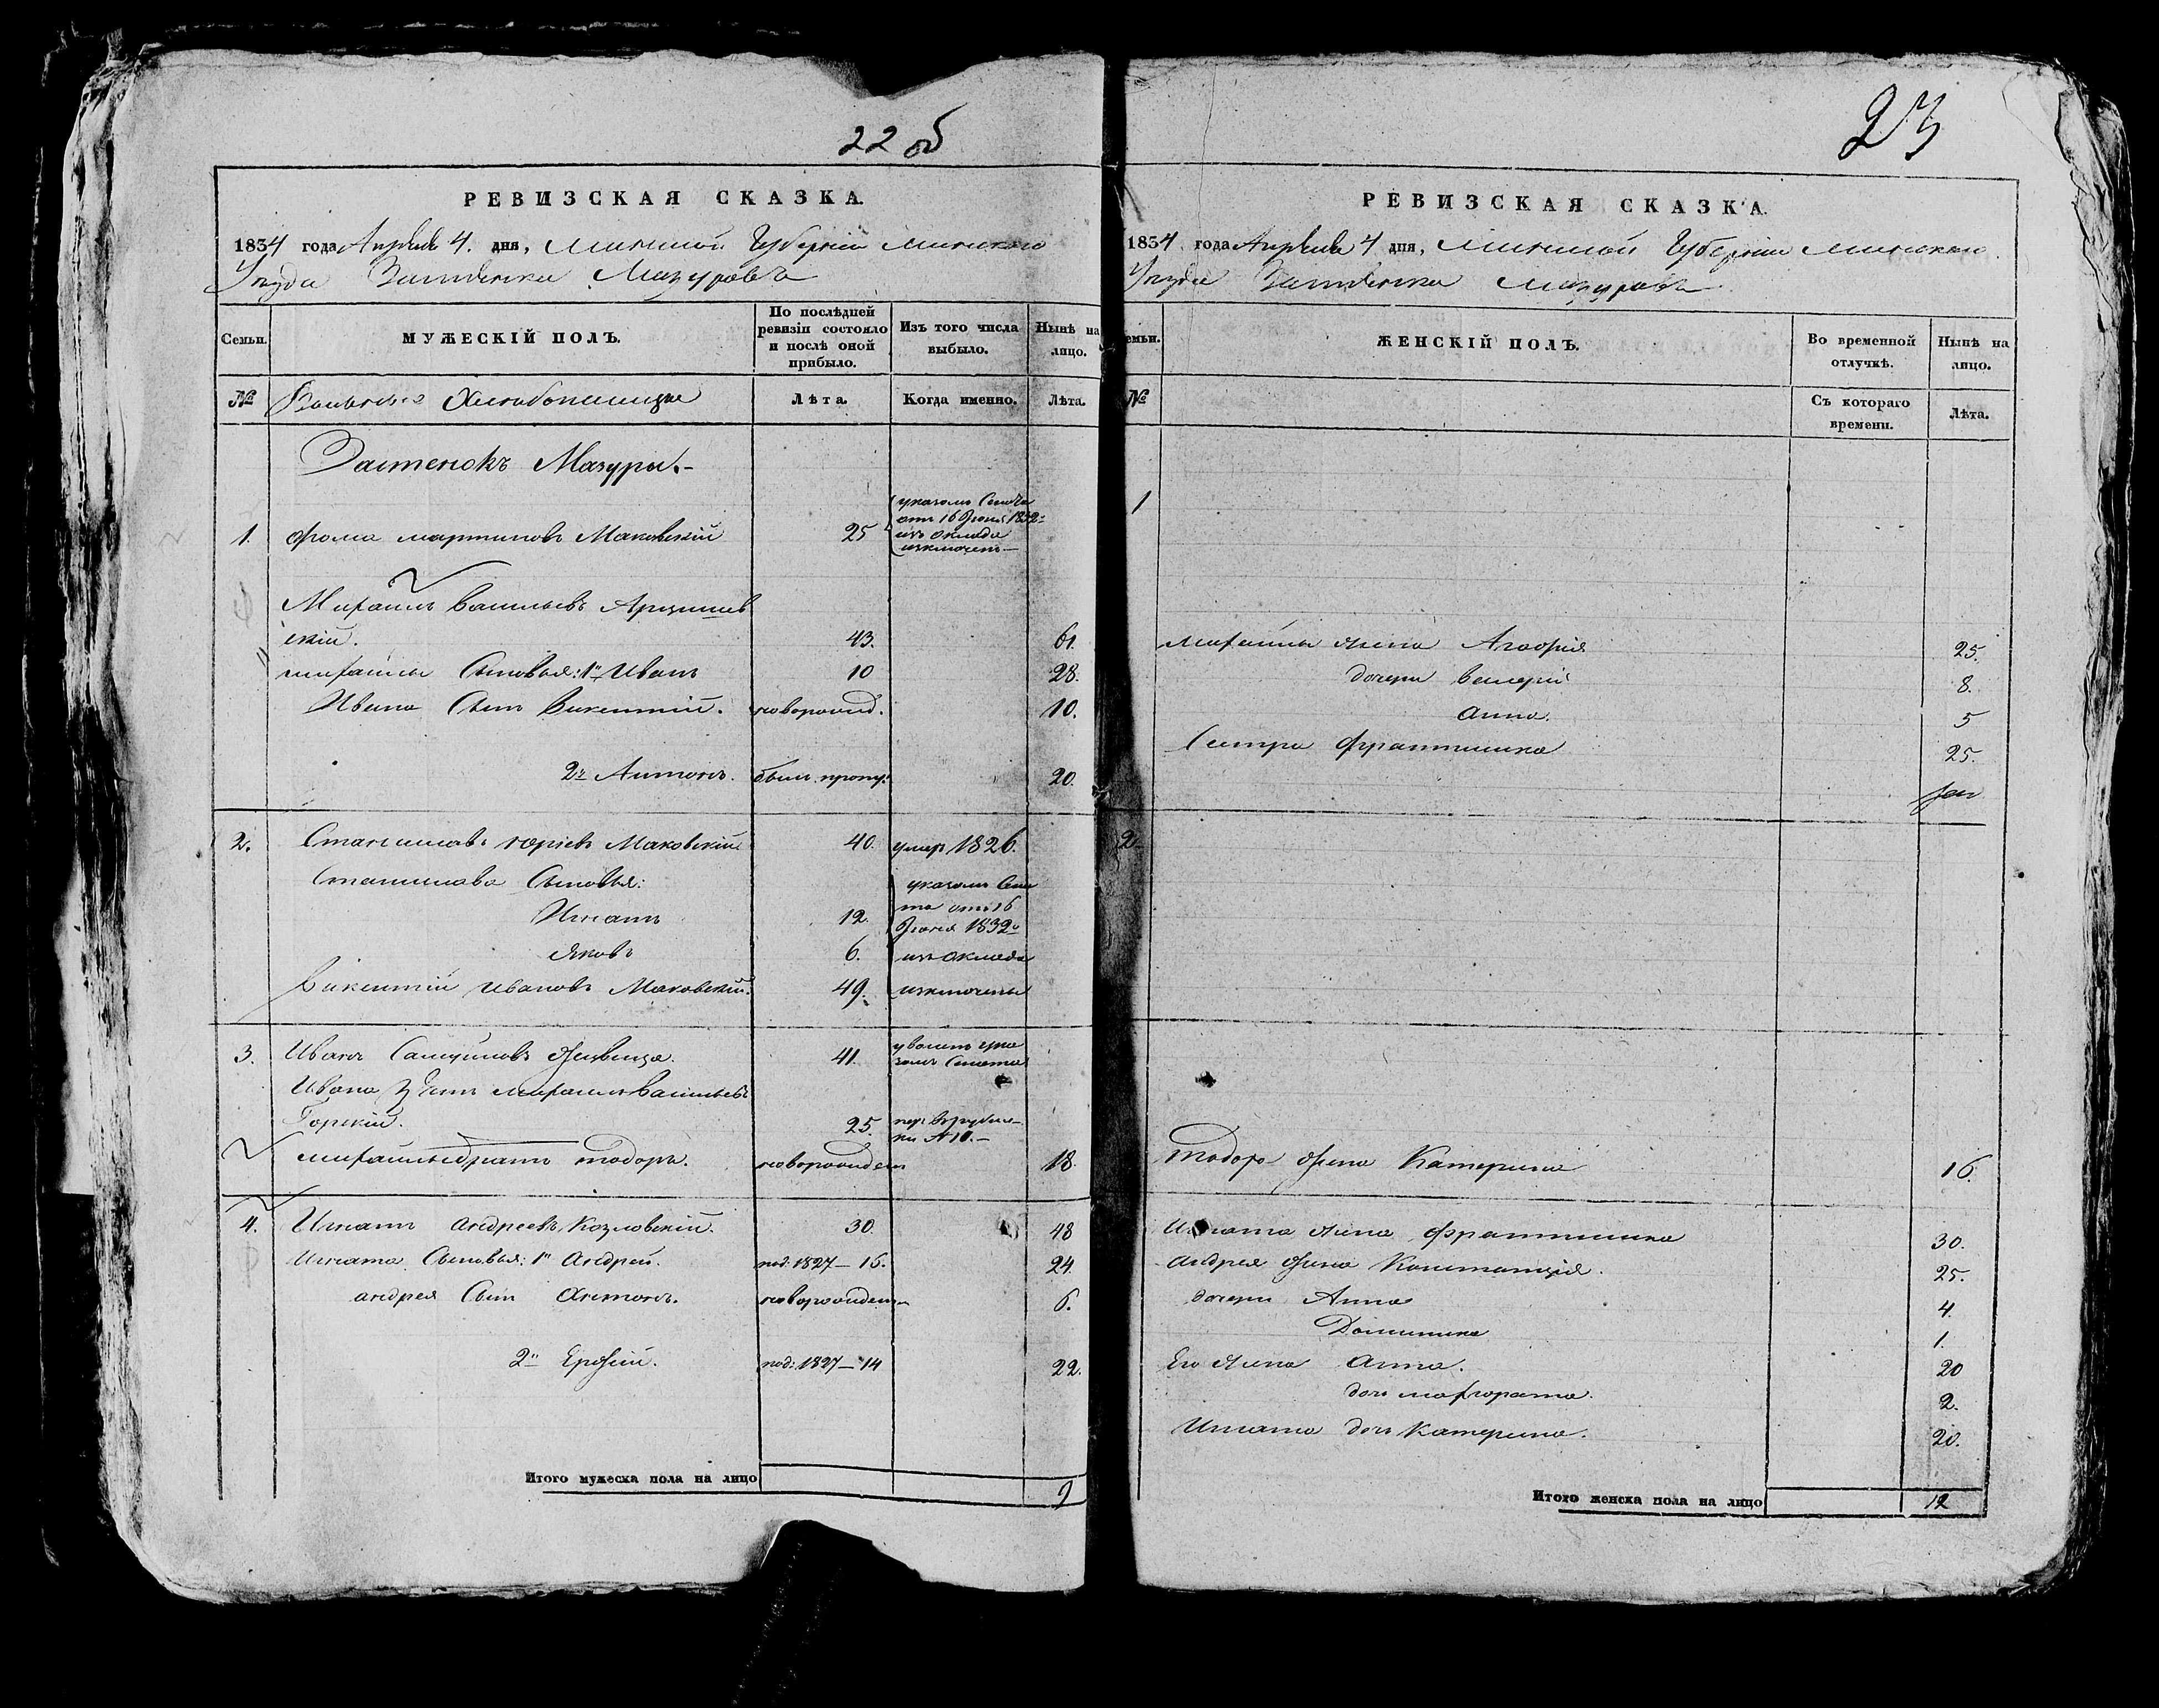 22 об
РЕВИЗСКАЯ СКАЗКА.
1834 года Апреля 4. дня, Минской Губернии Минскаго
Уезда Застенка Мазуровъ
Семьи.
МУЖЕСКІЙ ПОЛЪ.
По послѣдней ревизіи состояло и послѣ оной прибыло.
Изъ того числа выбыло.
Нынѣ на лицо.
№
Вольные Хлебопашцы
Лѣта.
Когда именно.
Лѣта.
Застенокъ Мазуры.-
1. Фома мартиновъ Маковскій 25
указомъ Сената
отъ 16 Іюня 1832го
изъ оклада
изключенъ
Михаилъ Васильевъ
скій. 43. 61.
михайлы Сыновья: 1й Иванъ 10 28.
Ивана Сынъ Викентій. новорожд. 10.
2й Антонъ. былъ пропу: 20.
2. Станиславъ юріевъ Маковскій 40. умеръ 1826.
Станислава Сыновья:
Игнатъ 12.
Яковъ 6.
Викентій Ивановъ Маковскій. 49.
указомъ Сена
та отъ 16
Іюня 1832го
изъ оклада
изключены
3. Иванъ 41.
уволенъ ука
зомъ Сената
Ивана зять михаилъ Васильевъ
Горскій. 25.
№ 10.-
михайлы братъ тодоръ. новорожденъ 18.
4. Игнатъ андреевъ Козловскій. 30. 48
Игната Сыновья: 1й Андрей. под: 1827 – 16. 24.
андрея Сынъ Антонъ. новорожденъ 6.
2й Ерофій. под: 1827 – 14 22.
Итого мужеска пола на лицо 9
23
РЕВИЗСКАЯ СКАЗКА.
1834 года Апреля 4 дня, Минской Губерніи Минскаго
Уезда Застенка Мазуровъ
Семьи.
ЖЕНСКІЙ ПОЛЪ.
Во временной отлучкѣ.
Нынѣ на лицо.
№
Съ котораго времени.
Лѣта.
1
михайлы жена Агафія 25.
дочери 8.
Анна. 5
Сестра Франтишка 25.
2.
тодора жена Катерина 16.
Игната жена Франтишка 30.
андрея жена Констанція. 25.
дочери Анна 4.
Доминика 1.
Его жена Анна. 20
дочь маргората. 2.
Игната дочь Катерина. 20.
Итого женска пола на лицо 12